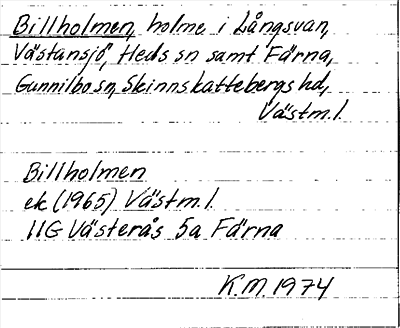 Billholmen, holme i Långsvan,
Västansjö, Heds sn samt Färna,
Gunnilbo sn, Skinnskattebergs hd,
Västm.l.
Billholmen
ek (1965) Västm.l.
11G Västerås 5a Färna
K.M. 1974